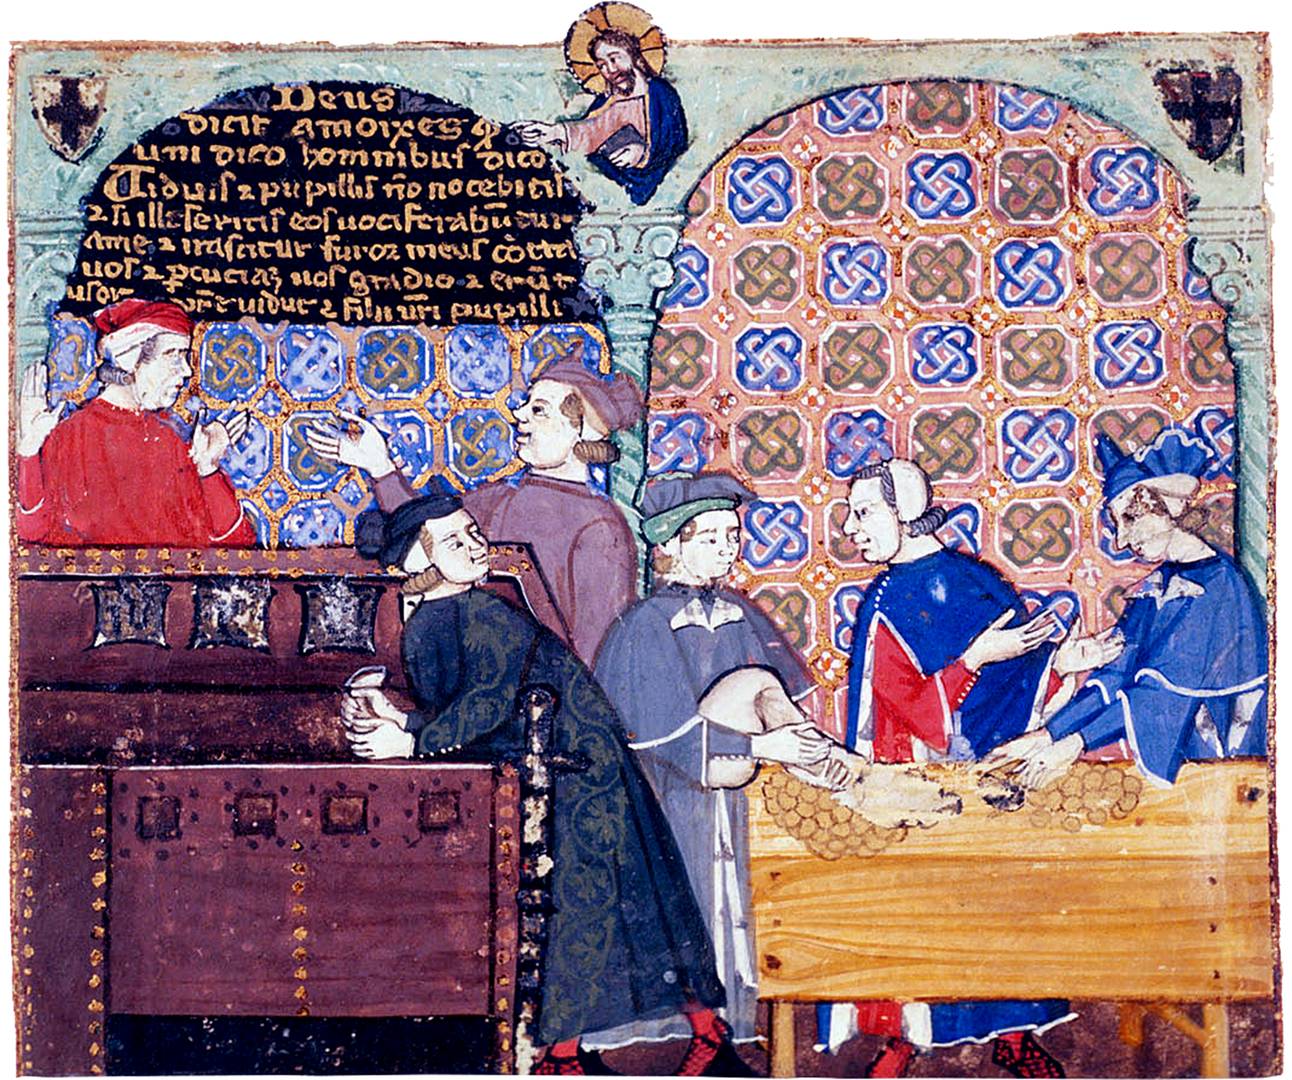 Deus
dicit amoixes q
uni dico hominibus dico
Viduis 2 pupillis no nocebitis
2 si illeseritis eos vociferabu
ame 2 irascitur furor meus
uos 2 pcuciaz uos gladio 2 erut
uidue 2 filii uri pupilli